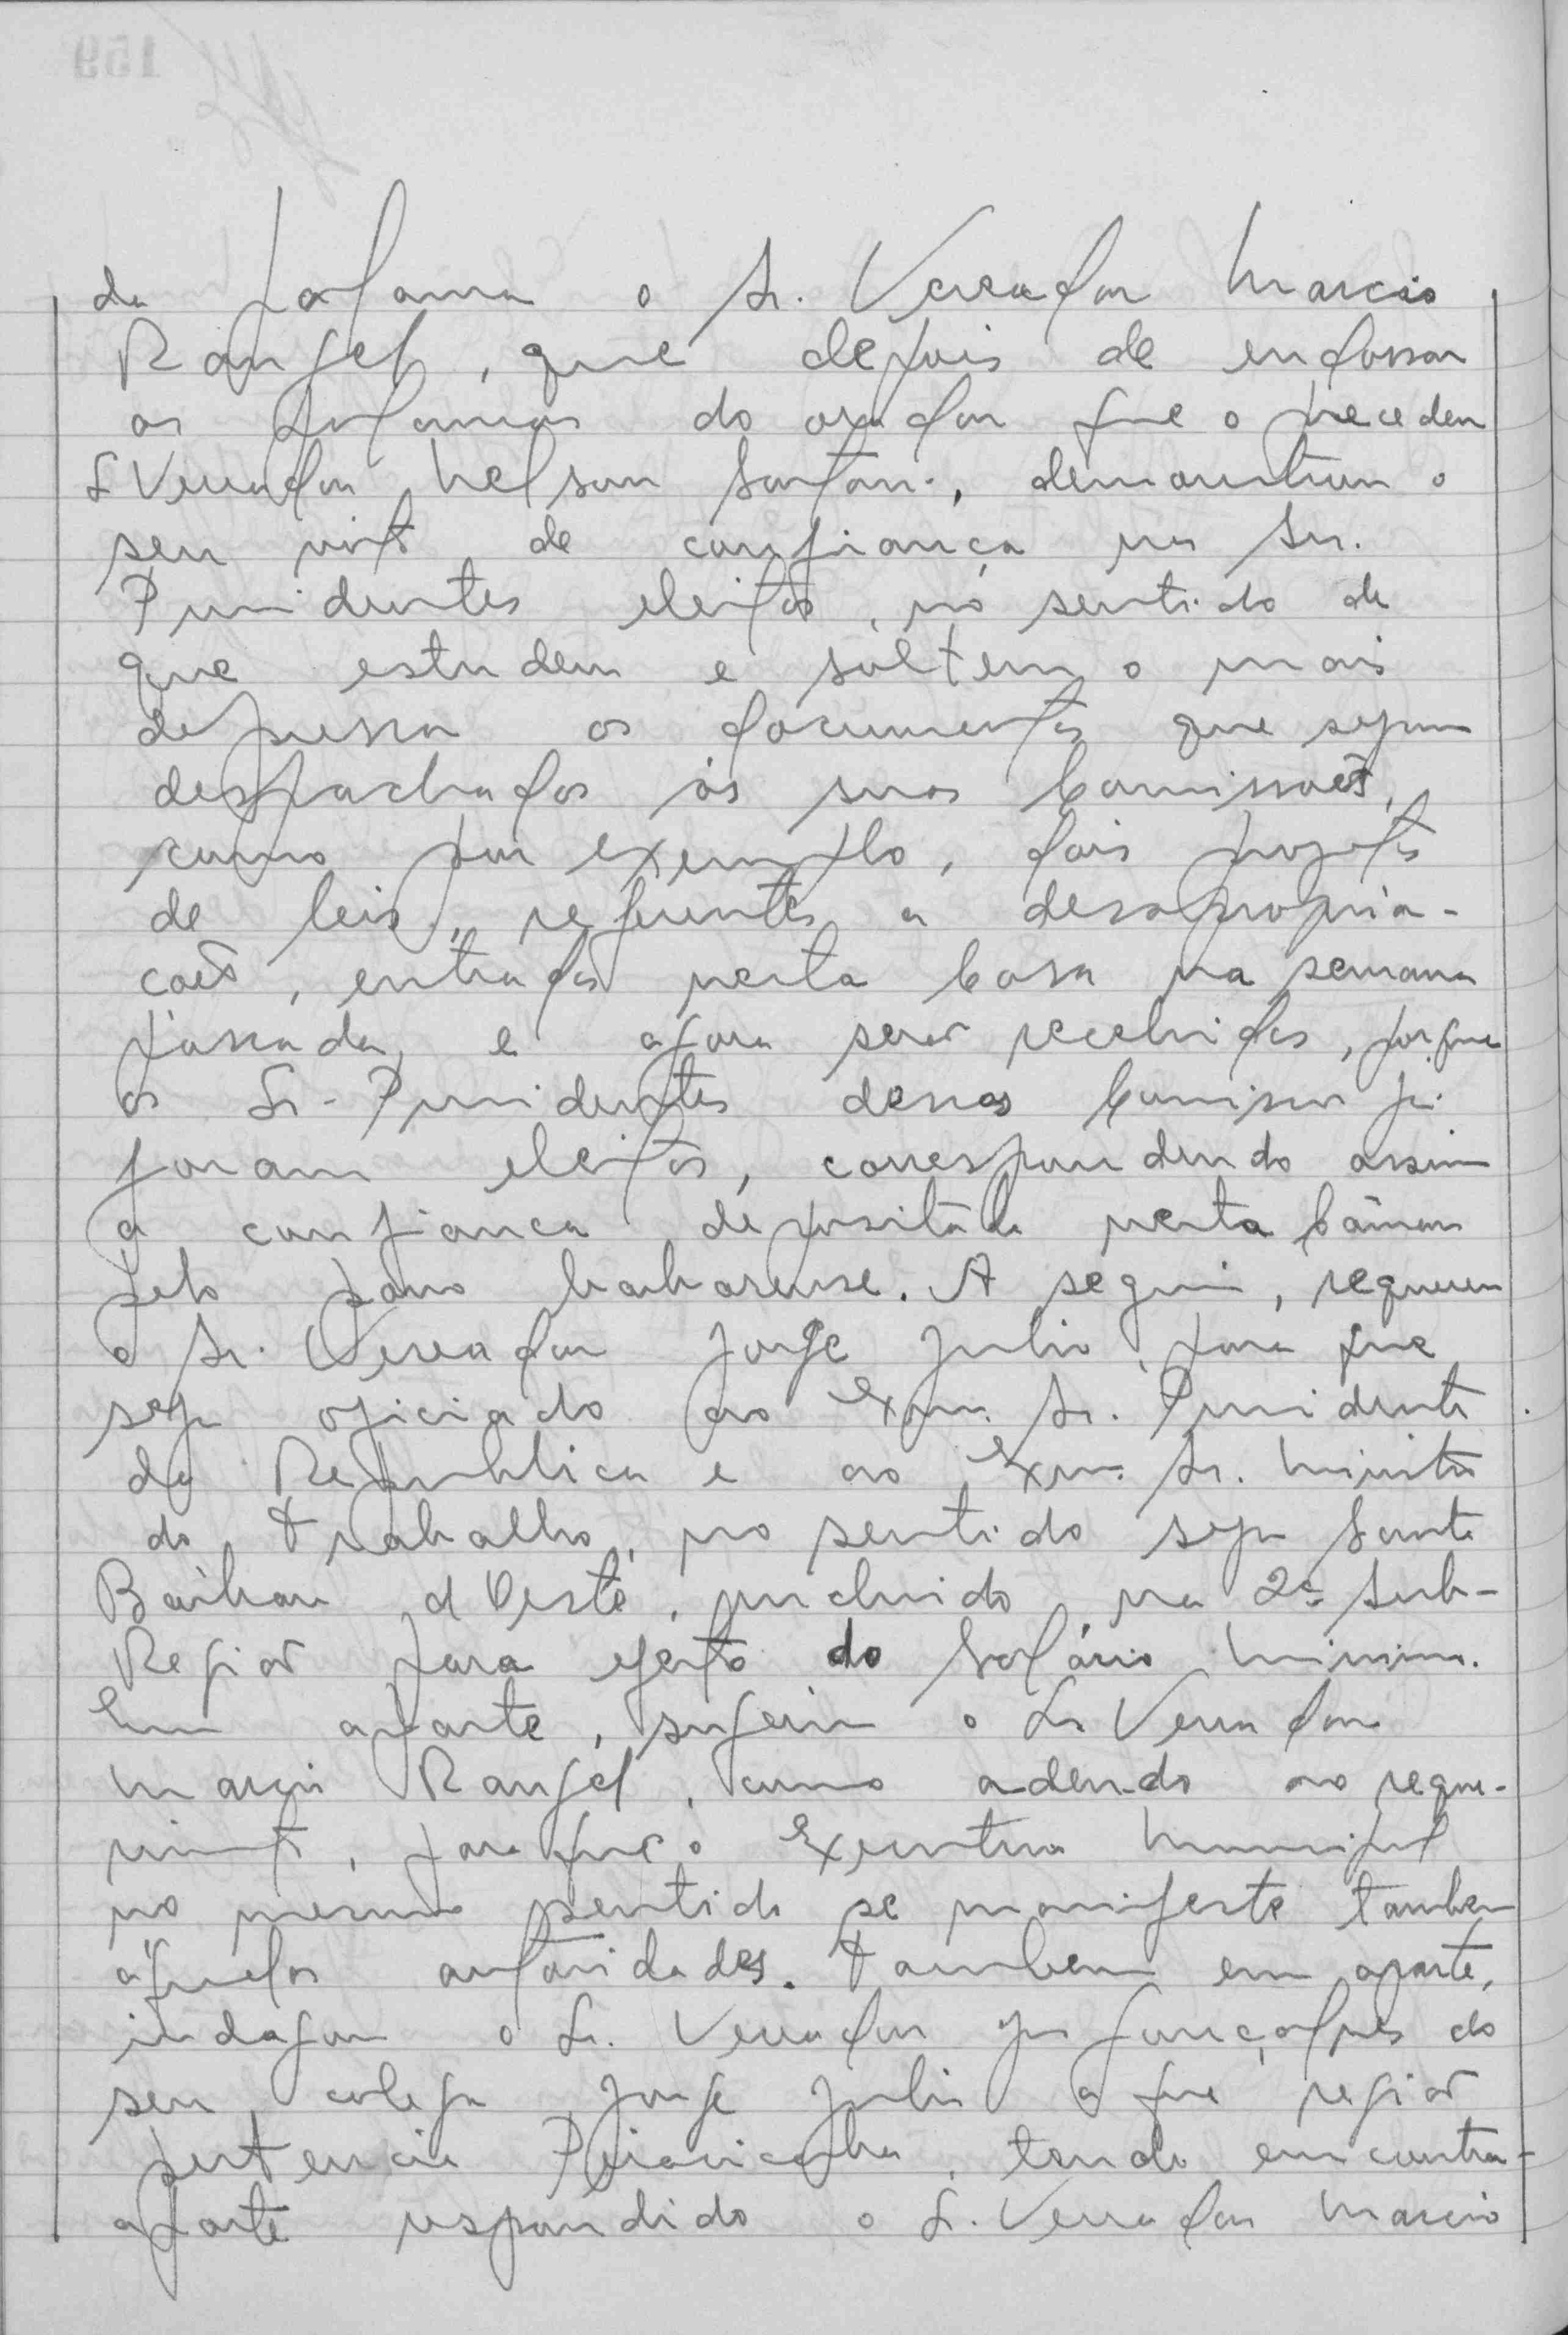 da palavra o Sr. Vereador Marcio
Rangel, que depois de endossar
as palavras do orador que o precedeu
Sr Vereador Nelson, demonstrou o
seu voto de confiança nos Srs.
Presidentes eleitos, no sentido de
que estudem e soltem o mais
depressa os documentos que sejam
despachados às suas Comissoẽs,
como por exemplo, dois projetos
de leis, referentes a desapropria-
coẽs, entrados nesta Casa na semana
passada, e agora serão recebidos, porque
os Sr. Presidentes dessas já
foram eleitos, correspondendo assim
a confianca depositada nesta Câmara
pelo povo barbarense. A seguir, requereu
o Sr. Vereador Jorge Julio, para que
seja oficiado ao Exmo. Sr. Presidente
da Republica e ao Exmo. Sr. Ministro
do Trabalho, no sentido seja Santa
Bárbara d'Oeste, incluido na 2ª Sub-
Região para efeito do Salário Minimo.
Em aparte, sugeriu o Sr Vereador
Marcio Rangel, como adendo ao reque-
rimento, para que o Executivo Municipal
no mesmo sentido se manifeste tambem
àquelas autoridades. Tambem em aparte,
indagou o Sr. Vereador do
seu colega Jorge Julio a que região
pertencia Piracicaba, tendo em contra-
aparte respondido o Sr. Vereador Marcio